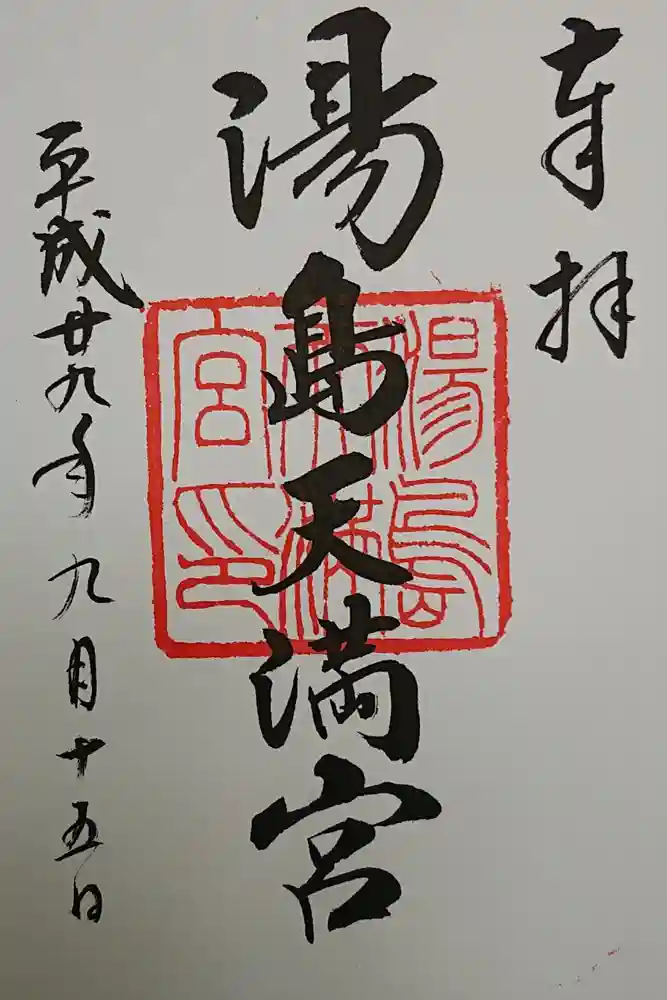 奉拝
湯島天満宮
湯島
天満
宮印
平成廿九年九月十五日